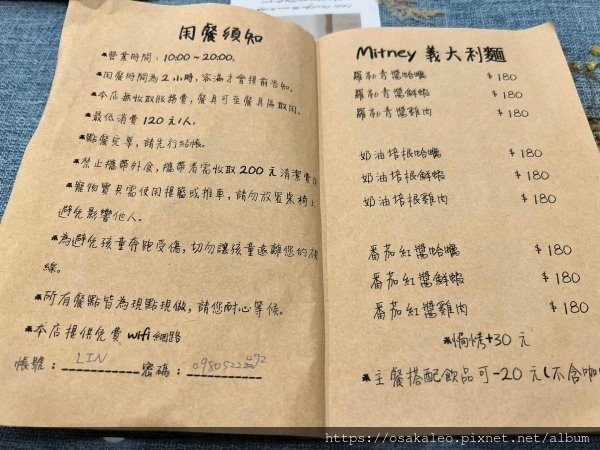 用餐須知
*營業時間：10:00～20:00.
*用餐時間為2小時，客滿才會提前告知。
*本店無收取服務費，餐具可至餐具區取用。
*最低消費 120元/人.
*點餐完畢，請先行結帳。
*禁止攜帶外食，攜帶者需收取200元清潔費
*寵物寶貝需使用提籃或推車，請勿放置桌椅上
避免影響他人。
*為避免孩童奔跑受傷，切勿讓孩童遠離您的視
線。
*所有餐點皆為現點現做，請您耐心等候。
*本店提供免費 wifi 網路
帳號：LIN 密碼：
Mitney 義大利麵
羅勒青醬蛤蠣 $180
羅勒青醬鮮蝦 $180
羅勒青醬雞肉 $180
奶油培根蛤蠣 $180
奶油培根鮮蝦 $180
奶油培根雞肉 $180
番茄紅醬蛤蠣 $180
番茄紅醬鮮蝦 $180
番茄紅醬雞肉 $180
*焗烤+30元
*主餐搭配飲品可-20元(不含咖
https://osakaleo.pixnet.net/album